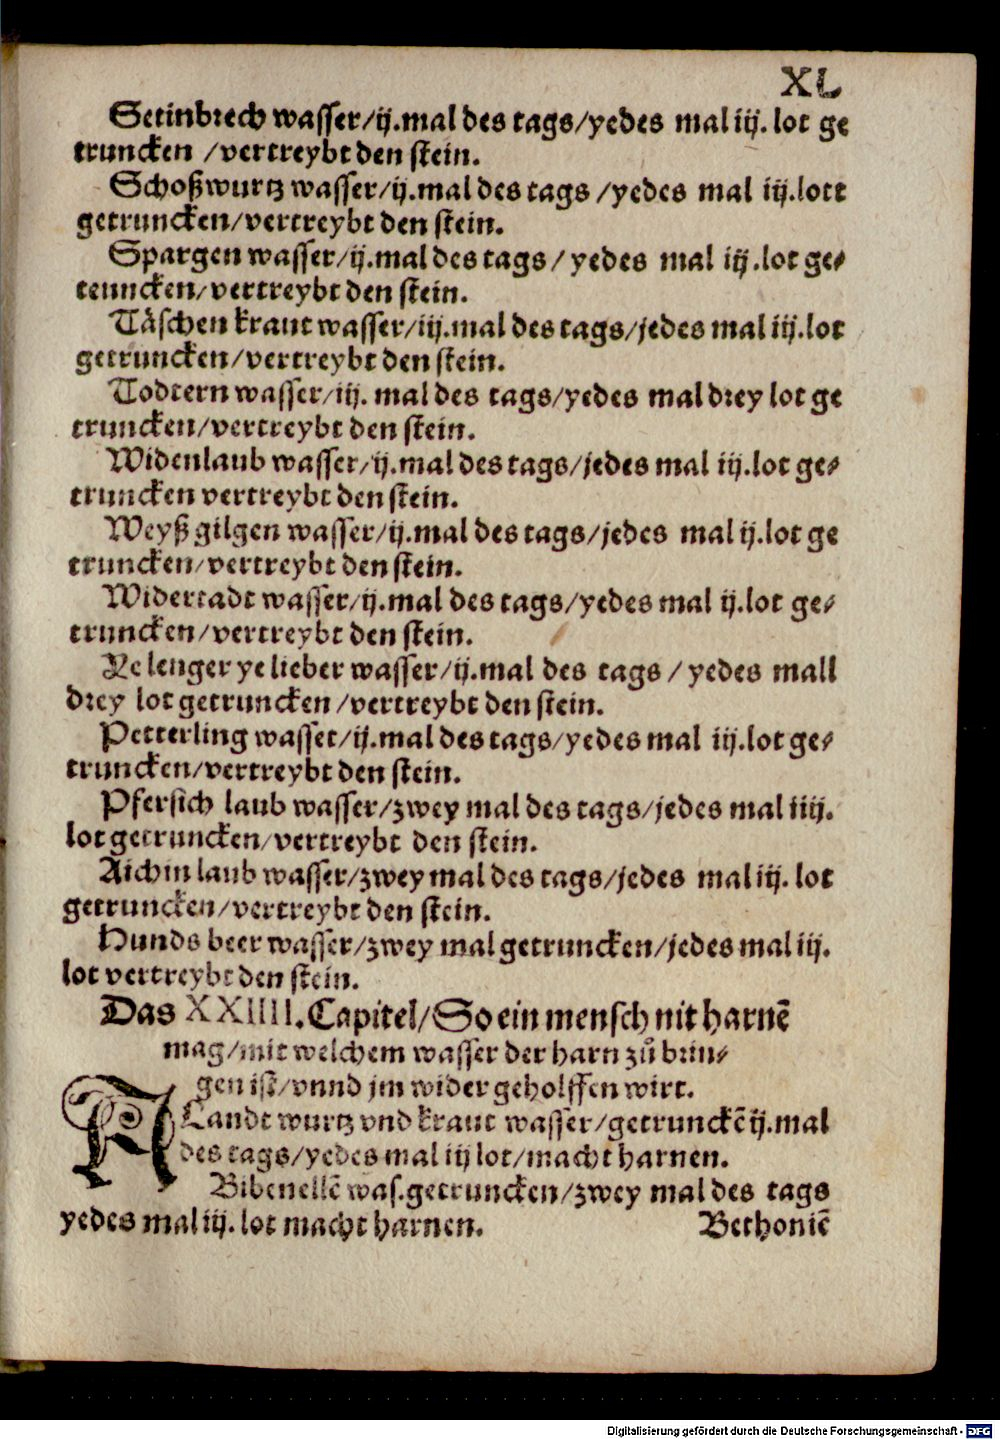 XL
Setinbrech wasser/ij.mal des tags/yedes mal iij. lot ge
truncken /vertreybt den stein.
Schoßwurtz wasser/ij.mal des tags /yedes mal iij.lott
getruncken/vertreybt den stein.
Spargen wasser/ij.mal des tags / yedes mal iij .lot ge⸗
teuncken/vertreybt den stein.
Täschen kraut wasser/iij.mal des tags/jedes mal iij.lot
getruncken/vertreybt den stein.
Todtern wasser/iij. mal des tags/yedes mal drey lot ge
truncken/vertreybt den stein.
Widenlaub wasser/ij.mal des tags/jedes mal iij.lot ge⸗
truncken vertreybt den stein.
Weyß gilgen wasser/ij.mal des tags/jedes mal ij.lot ge
truncken/vertreybt den stein.
Widertadt wasser/ij.mal des tags/yedes mal ij.lot ge⸗
truncken/vertreybt den stein.
Ye lenger ye lieber wasser/ij.mal des tags / yedes mall
drey lot getruncken /vertreybt den stein.
Petterling wasset/ij.mal des tags/yedes mal iij.lot ge⸗
truncken/vertreybt den stein.
Pfersich laub wasser/zwey mal des tags/jedes mal iiij.
lot getruncken/vertreybt den stein.
Aichin laub wasser/zwey mal des tags/jedes mal iij. lot
getruncken/vertreybt den stein.
Hunds beer wasser/zwey mal getruncken/jedes mal iij.
lot vertreybt den stein.
Das XXIIII.Capitel/So ein mensch nit harnē
mag/mit welchem wasser der harn zů brin⸗
gen ist/vnnd jm wider geholffen wirt.
ALandt wurtz vnd kraut wasser/getrunckē ij.mal
des tags/yedes mal iij lot/macht harnen.
Bibenellē was.getruncken/zwey mal des tags
yedes mal iij. lot macht harnen. Bethoniē
Digitalisierung gefördert durch die Deutsche Forschungsgemeinschaft - DFG